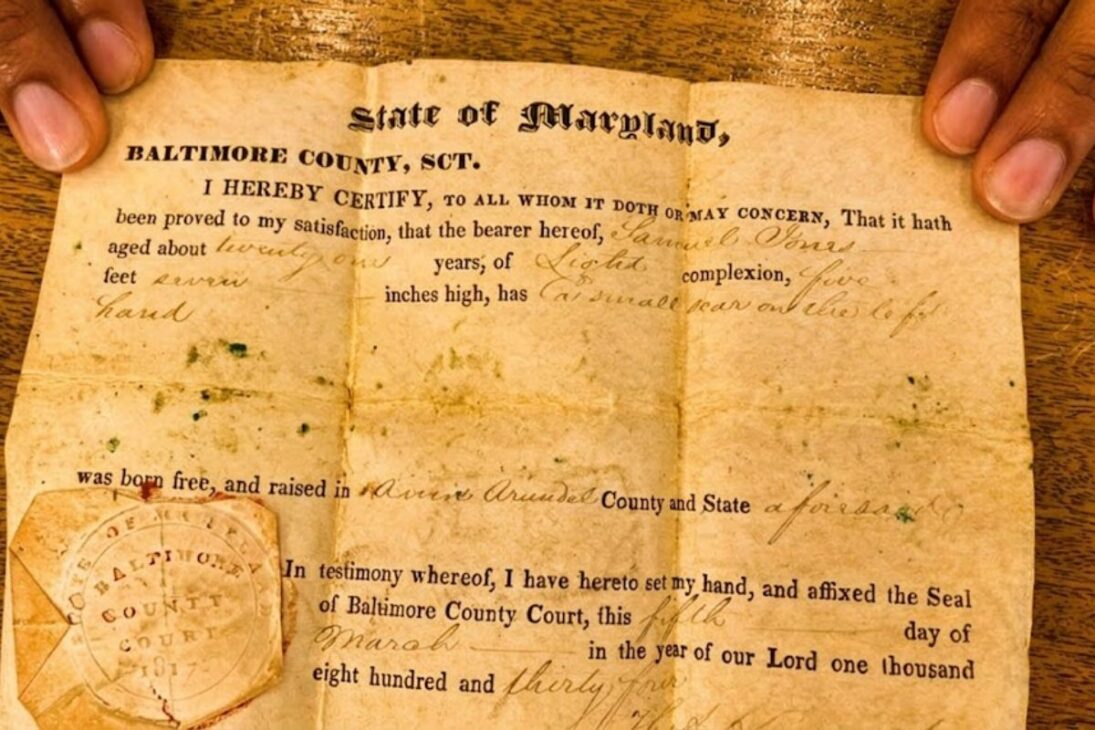 State of Maryland,
BALTIMORE COUNTY, SCT.
I HEREBY CERTIFY, TO ALL WHOM IT DOTH OR MAY CONCERN, That it hath
been proved to my satisfaction, that the bearer hereof, Samuel Jones
aged about twenty one years, of Light complexion, five
feet seven inches high, has a small scar on the left
hand
was born free, and raised in Ann Arundel County and State aforesaid
STATE OF MARYLAND
BALTIMORE
COUNTY
COURT
1817
In testimony whereof, I have hereto set my hand, and affixed the Seal
of Baltimore County Court, this fifth day of
March in the year of our Lord one thousand
eight hundred and thirty four